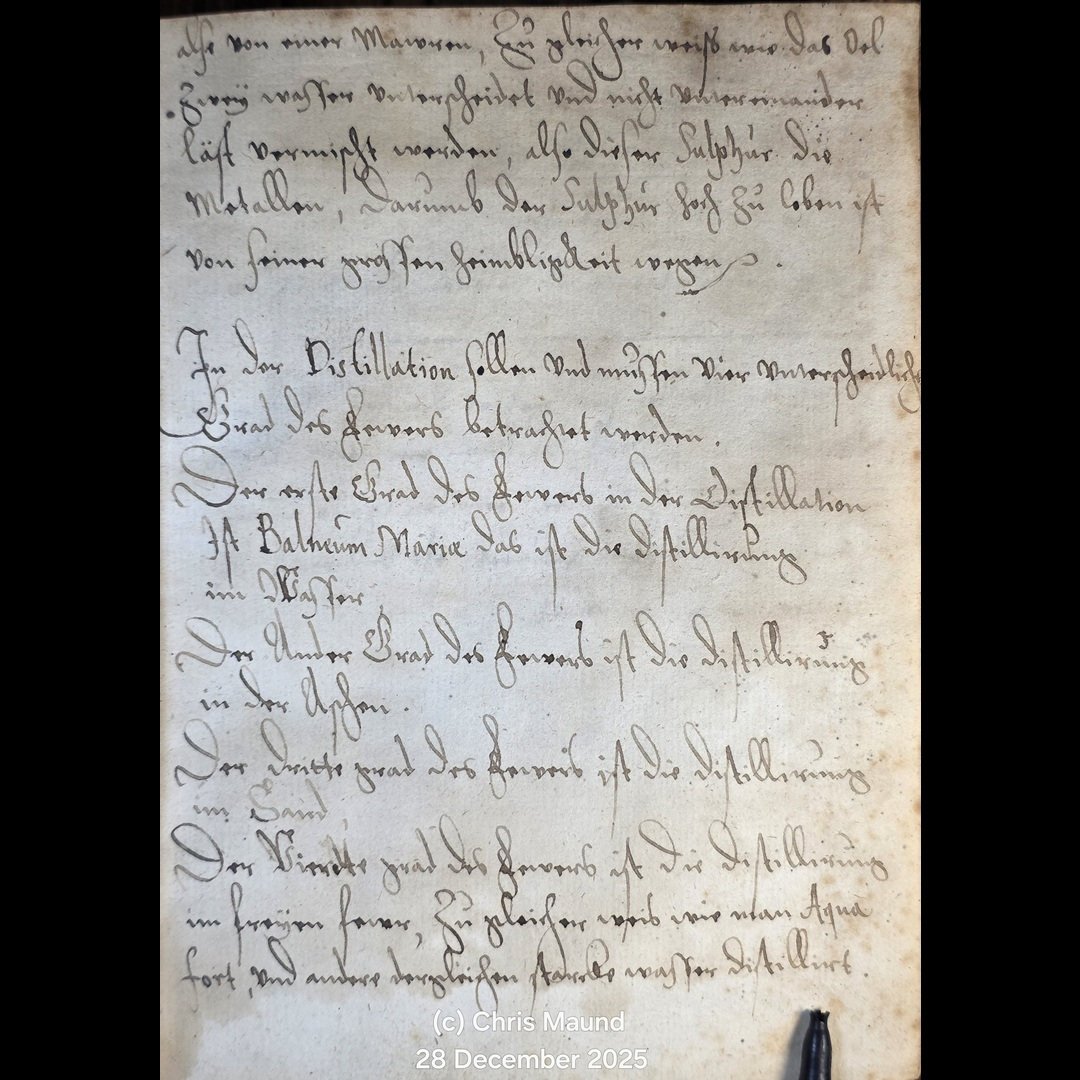 alß von einer Mawren, Zu gleicher weiß wie das Oel
Zweÿ wasser vnterscheidet vnd nicht vntereinander
läst vermischt werden, also dieser Sulphur die
Metallen, Darumb der Sulphur hoch zu loben ist
von seiner grossen heimbligkeit wegen.
In der Distillation sollen vnd müssen vier vnterscheidliche
Grad des Fewers betrachtet werden.
Der erste Grad des Fewers in der Distillation
Ist Balneum Mariæ das ist die distillirung
im Wasser,
Der Ander Grad des Fewers ist die distillirung
in der Aschen.
Der dritte grad des Fewers ist die distillirung
im Sand,
Der Vierdte grad des Fewers ist die distillirung
im freÿen fewr, Zu gleicher weis wie man Aqua
fort, vnd andere dergleichen starcke wasser distillirt.
(c) Chris Maund
28 December 2025